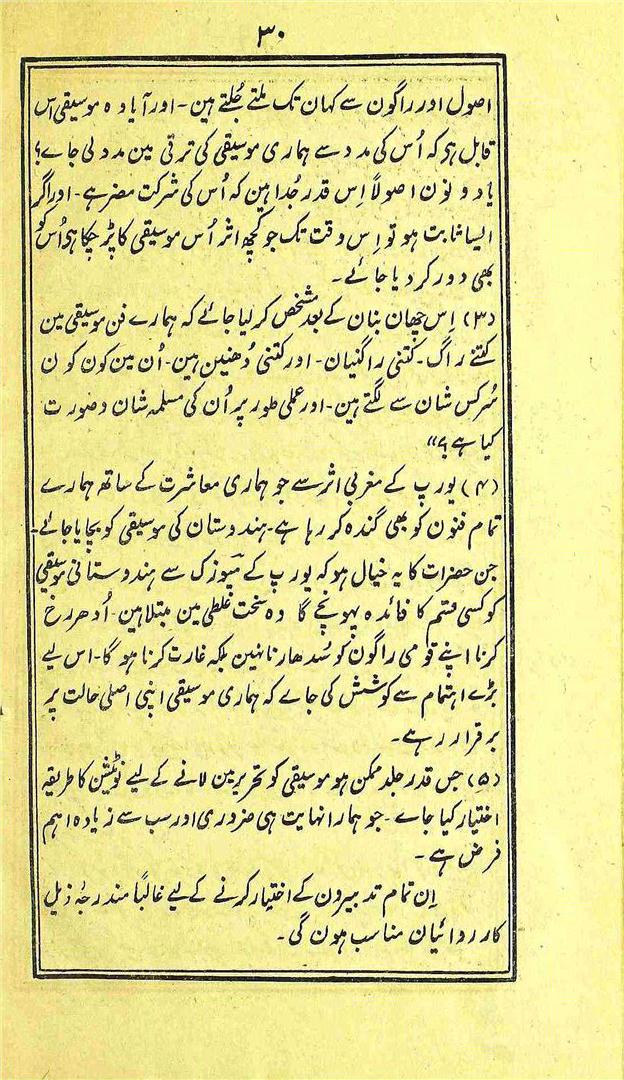 ۳۰
اصول اور راگون سے کہان تک ملتے جُلتے ہین - اور آیا وہ موسیقی اس
قابل ہی کہ اُس کی مدد سے ہماری موسیقی کی ترقی مین مدد لی جاے؟
یا دونون اصولاً اِس قدر جُدا ہین کہ اُس کی شرکت مضر ہے - اور اگر
ایسا ثابت ہو تو اِس وقت تک جو کچھ اثر اُس موسیقی کا پڑ چکا ہی اُس کو
بھی دور کر دیا جائے -
(۳) اِس چھان بنان کے بعد مشخص کر لیا جائے کہ ہمارے فن موسیقی مین
کتنے راگ - کتنی راگنیان - اور کتنی دُھنین ہین - اُن مین کون کون
سُر کس شان سے لگتے ہین - اور عملی طور پر اُن کی مسلمہ شان و صورت
کیا ہے؟"
(۴) یورپ کے مغربی اثر سے جو ہماری معاشرت کے ساتھ ہمارے
تمام فنون کو بھی گندہ کر رہا ہے - ہندوستان کی موسیقی کو بچایا جائے -
جن حضرات کا یہ خیال ہو کہ یورپ کے میوزک سے ہندوستانی موسیقی
کو کسی قسم کا فائدہ پہونچے گا وہ سخت غلطی مین مبتلا ہین - اُدھر رخ
کرنا اپنے قومی راگون کو سُدھارنا نہین بلکہ غارت کرنا ہو گا - اس لیے
بڑے اہتمام سے کوشش کی جاے کہ ہماری موسیقی اپنی اصلی حالت پر
برقرار رہے -
(۵) جس قدر جلد ممکن ہو موسیقی کو تحریر مین لانے کے لیے نوٹیشن کا طریقہ
اختیار کیا جاے - جو ہمارا نہایت ہی ضروری اور سب سے زیادہ اہم
فرض ہے -
اِن تمام تدبیرون کے اختیار کرنے کے لیے غالباً مندرجۂ ذیل
کارروائیان مناسب ہون گی -